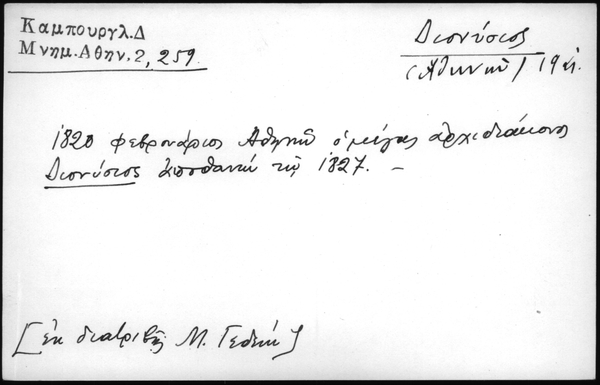 Καμπουργλ.Δ
Μνημ.Αθην.2, 259.
Διονύσιος
(Αθηνών) 19 αι.
1820 φεβρουάριος Αθηνών ο μέγας αρχιδιάκονος
Διονύσιος αποθανών τω 1827. –
[εκ διατριβής Μ. Γεδεών]